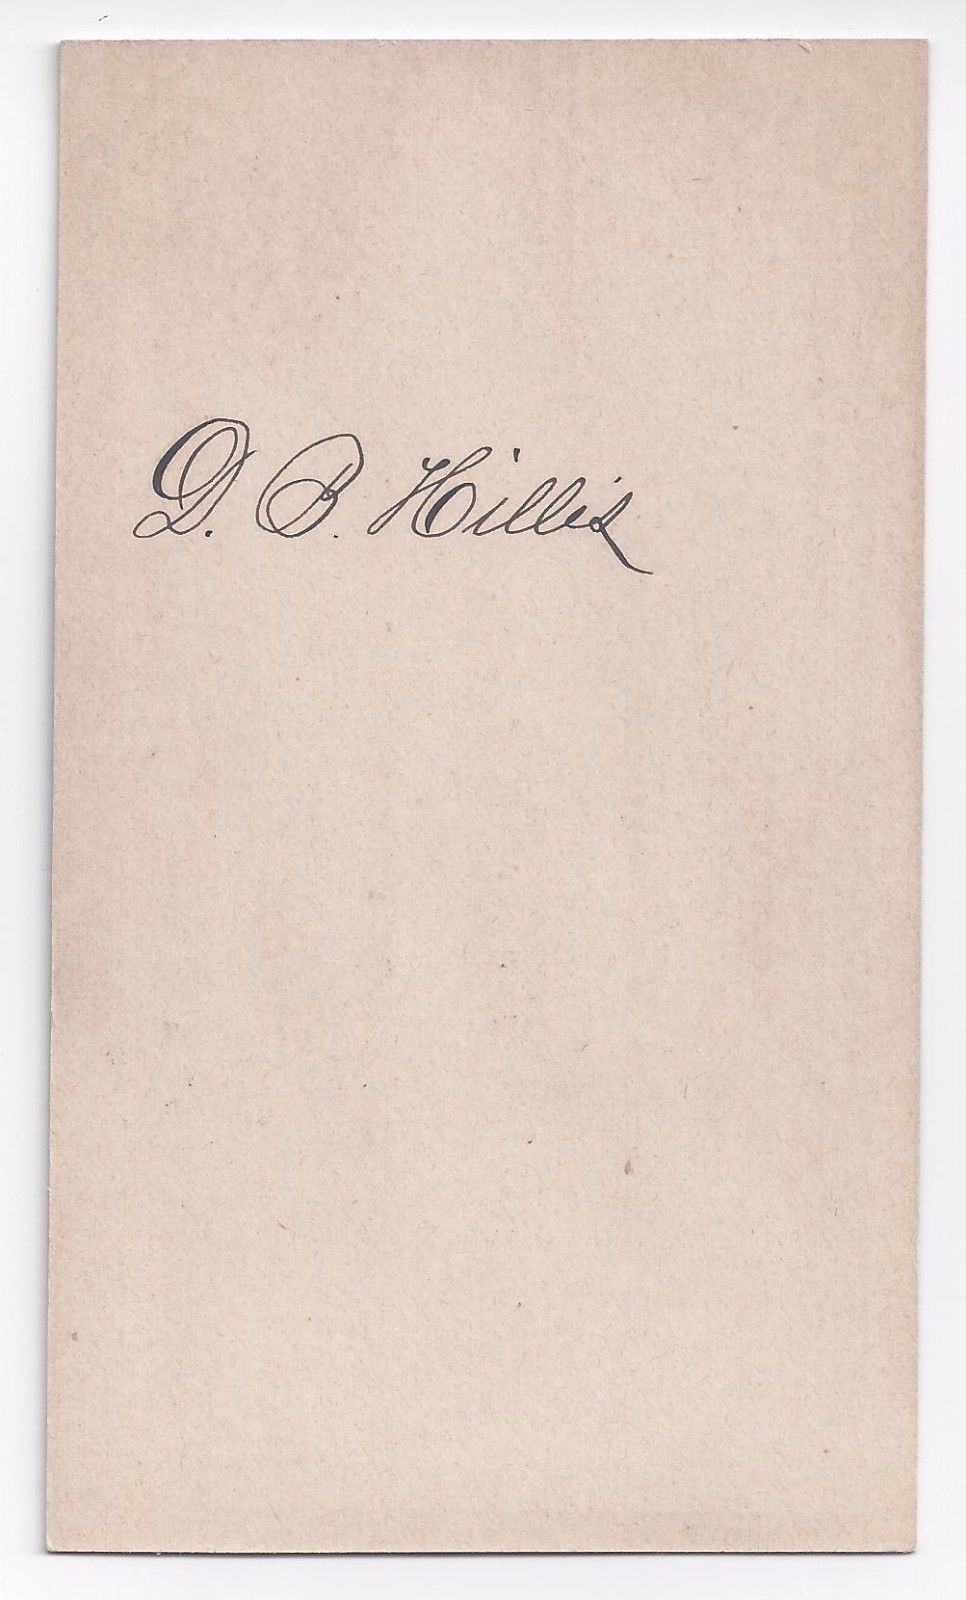 D. B. Hillis